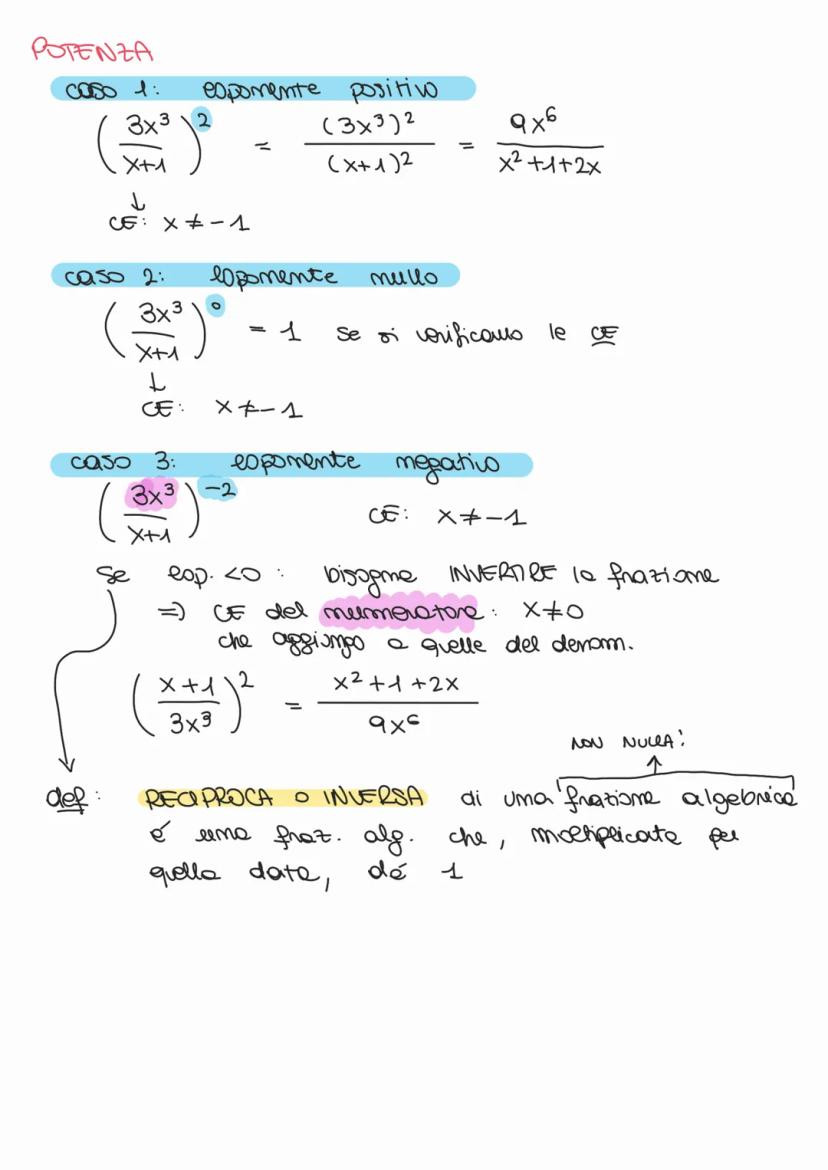 POTENZA
caso 1: esponente positivo
(3x³/x+1)² = (3x³)²/(x+1)² = 9x⁶/x²+1+2x
↓
CE: x ≠ -1
caso 2: esponente nullo
(3x³/x+1)⁰ = 1 se si verificano le CE
↓
CE: x ≠ -1
caso 3: esponente negativo
(3x³/x+1)⁻² CE: x ≠ -1
se esp. <0 : bisogna INVERTIRE la frazione
=> CE del numeratore: x≠0
che aggiungo a quelle del denom.
(x+1/3x³)² = x²+1+2x/9x⁶
NON NULLA!
def: RECIPROCA O INVERSA di una frazione algebrica
é una fraz. alg. che, moltiplicata per
quella data, dé 1